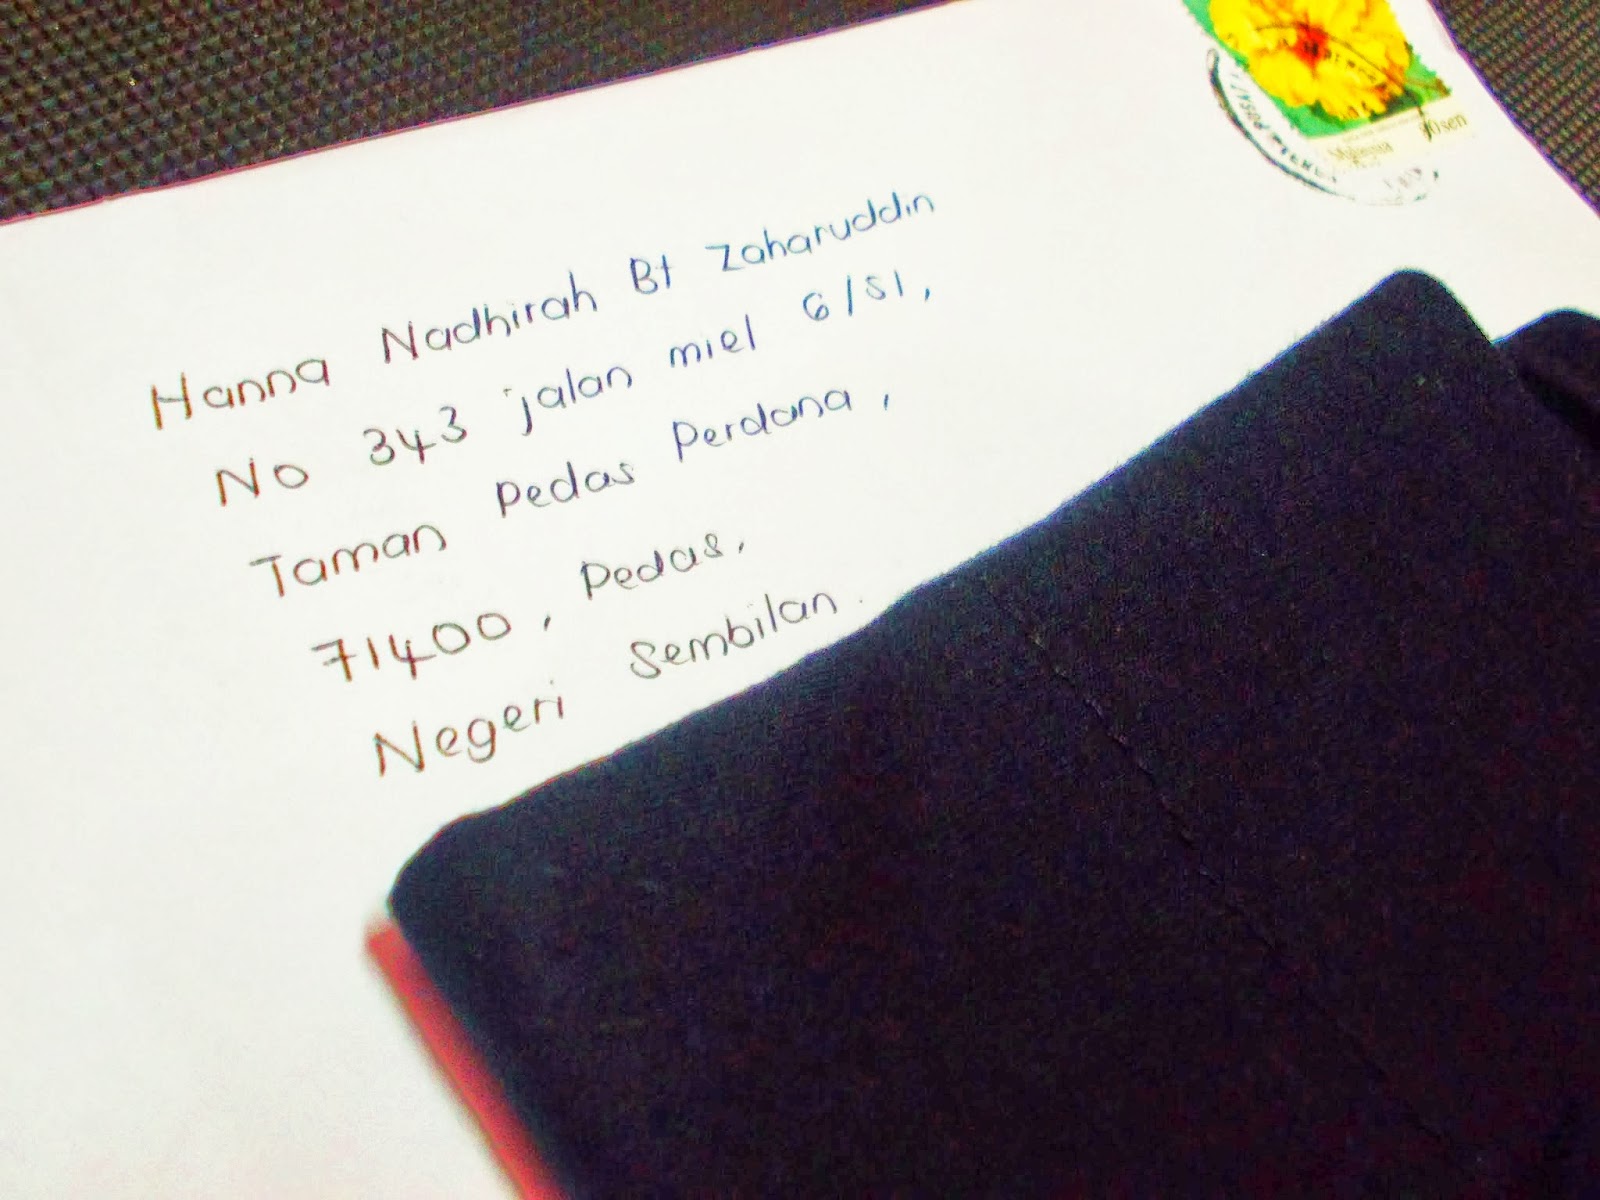 Malaysia 90sen
Hanna Nadhirah Bt Zaharuddin
No 343 jalan miel 6/S1,
Taman Pedas Perdana,
71400, Pedas,
Negeri Sembilan.